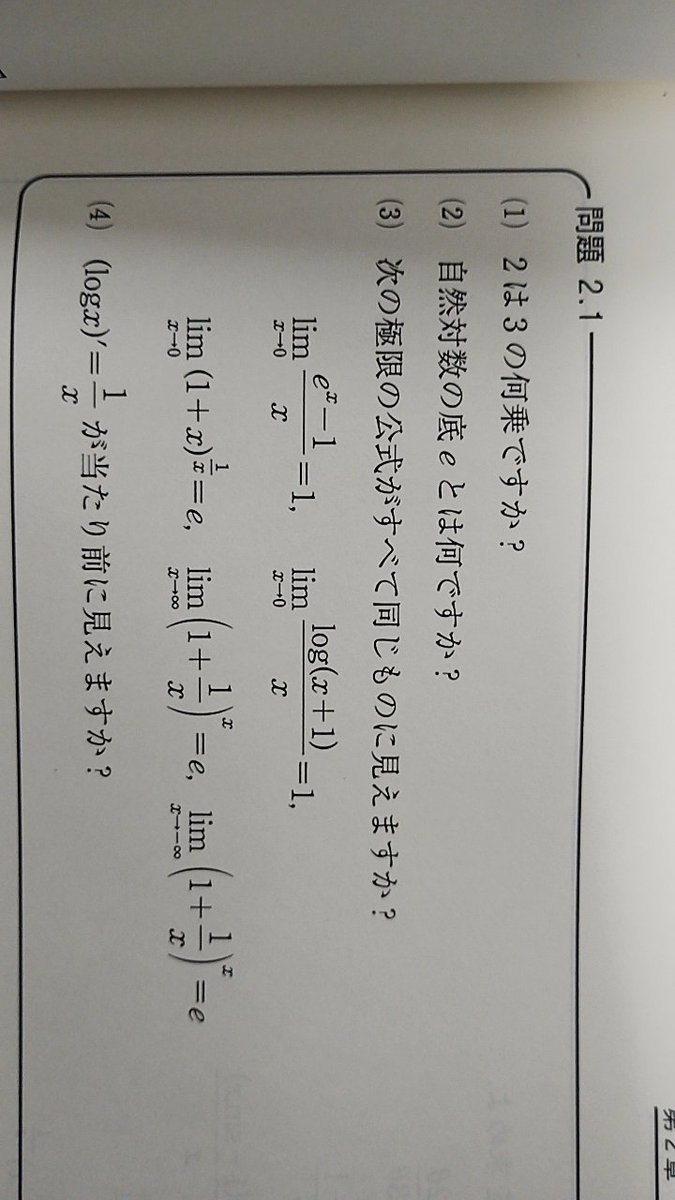 第2章
問題 2.1
(1) 2は3の何乗ですか?
(2) 自然対数の底eとは何ですか?
(3) 次の極限の公式がすべて同じものに見えますか?
lim_{x→0} (e^x−1)/x = 1, lim_{x→0} log(x+1)/x = 1,
lim_{x→0} (1+x)^{1/x} = e, lim_{x→∞} (1+1/x)^x = e, lim_{x→−∞} (1+1/x)^x = e
(4) (logx)′ = 1/x が当たり前に見えますか?